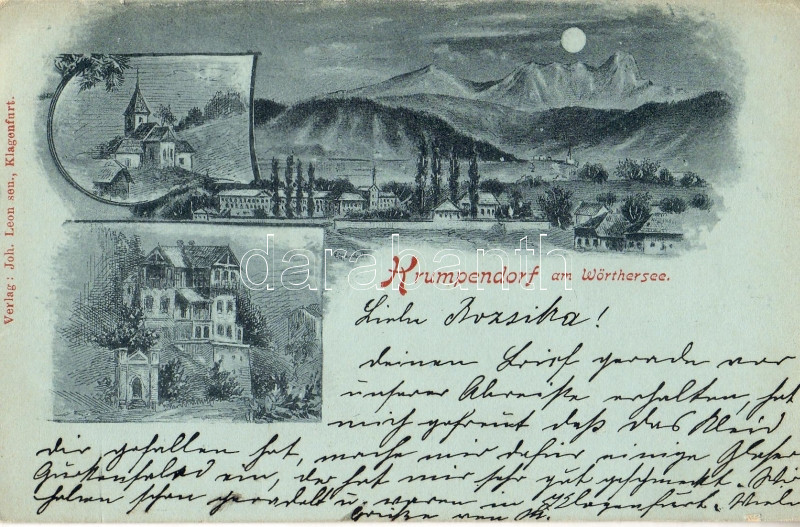 Verlag: Joh. Leon sen., Klagenfurt.
darabanth
Krumpendorf am Wörthersee.
Liebe Rozsika!
deinen Brief gerade vor
unserer Abreiße erhalten, hat
mich gefreut daß das Kleid
dir gefallen hat, mache mir dafür einige Gläser
Gurkensalad ein, der hat mir sehr gut geschmeckt. Wir
haben schon geradelt u. waren in Klagenfurt. Viele
von M.